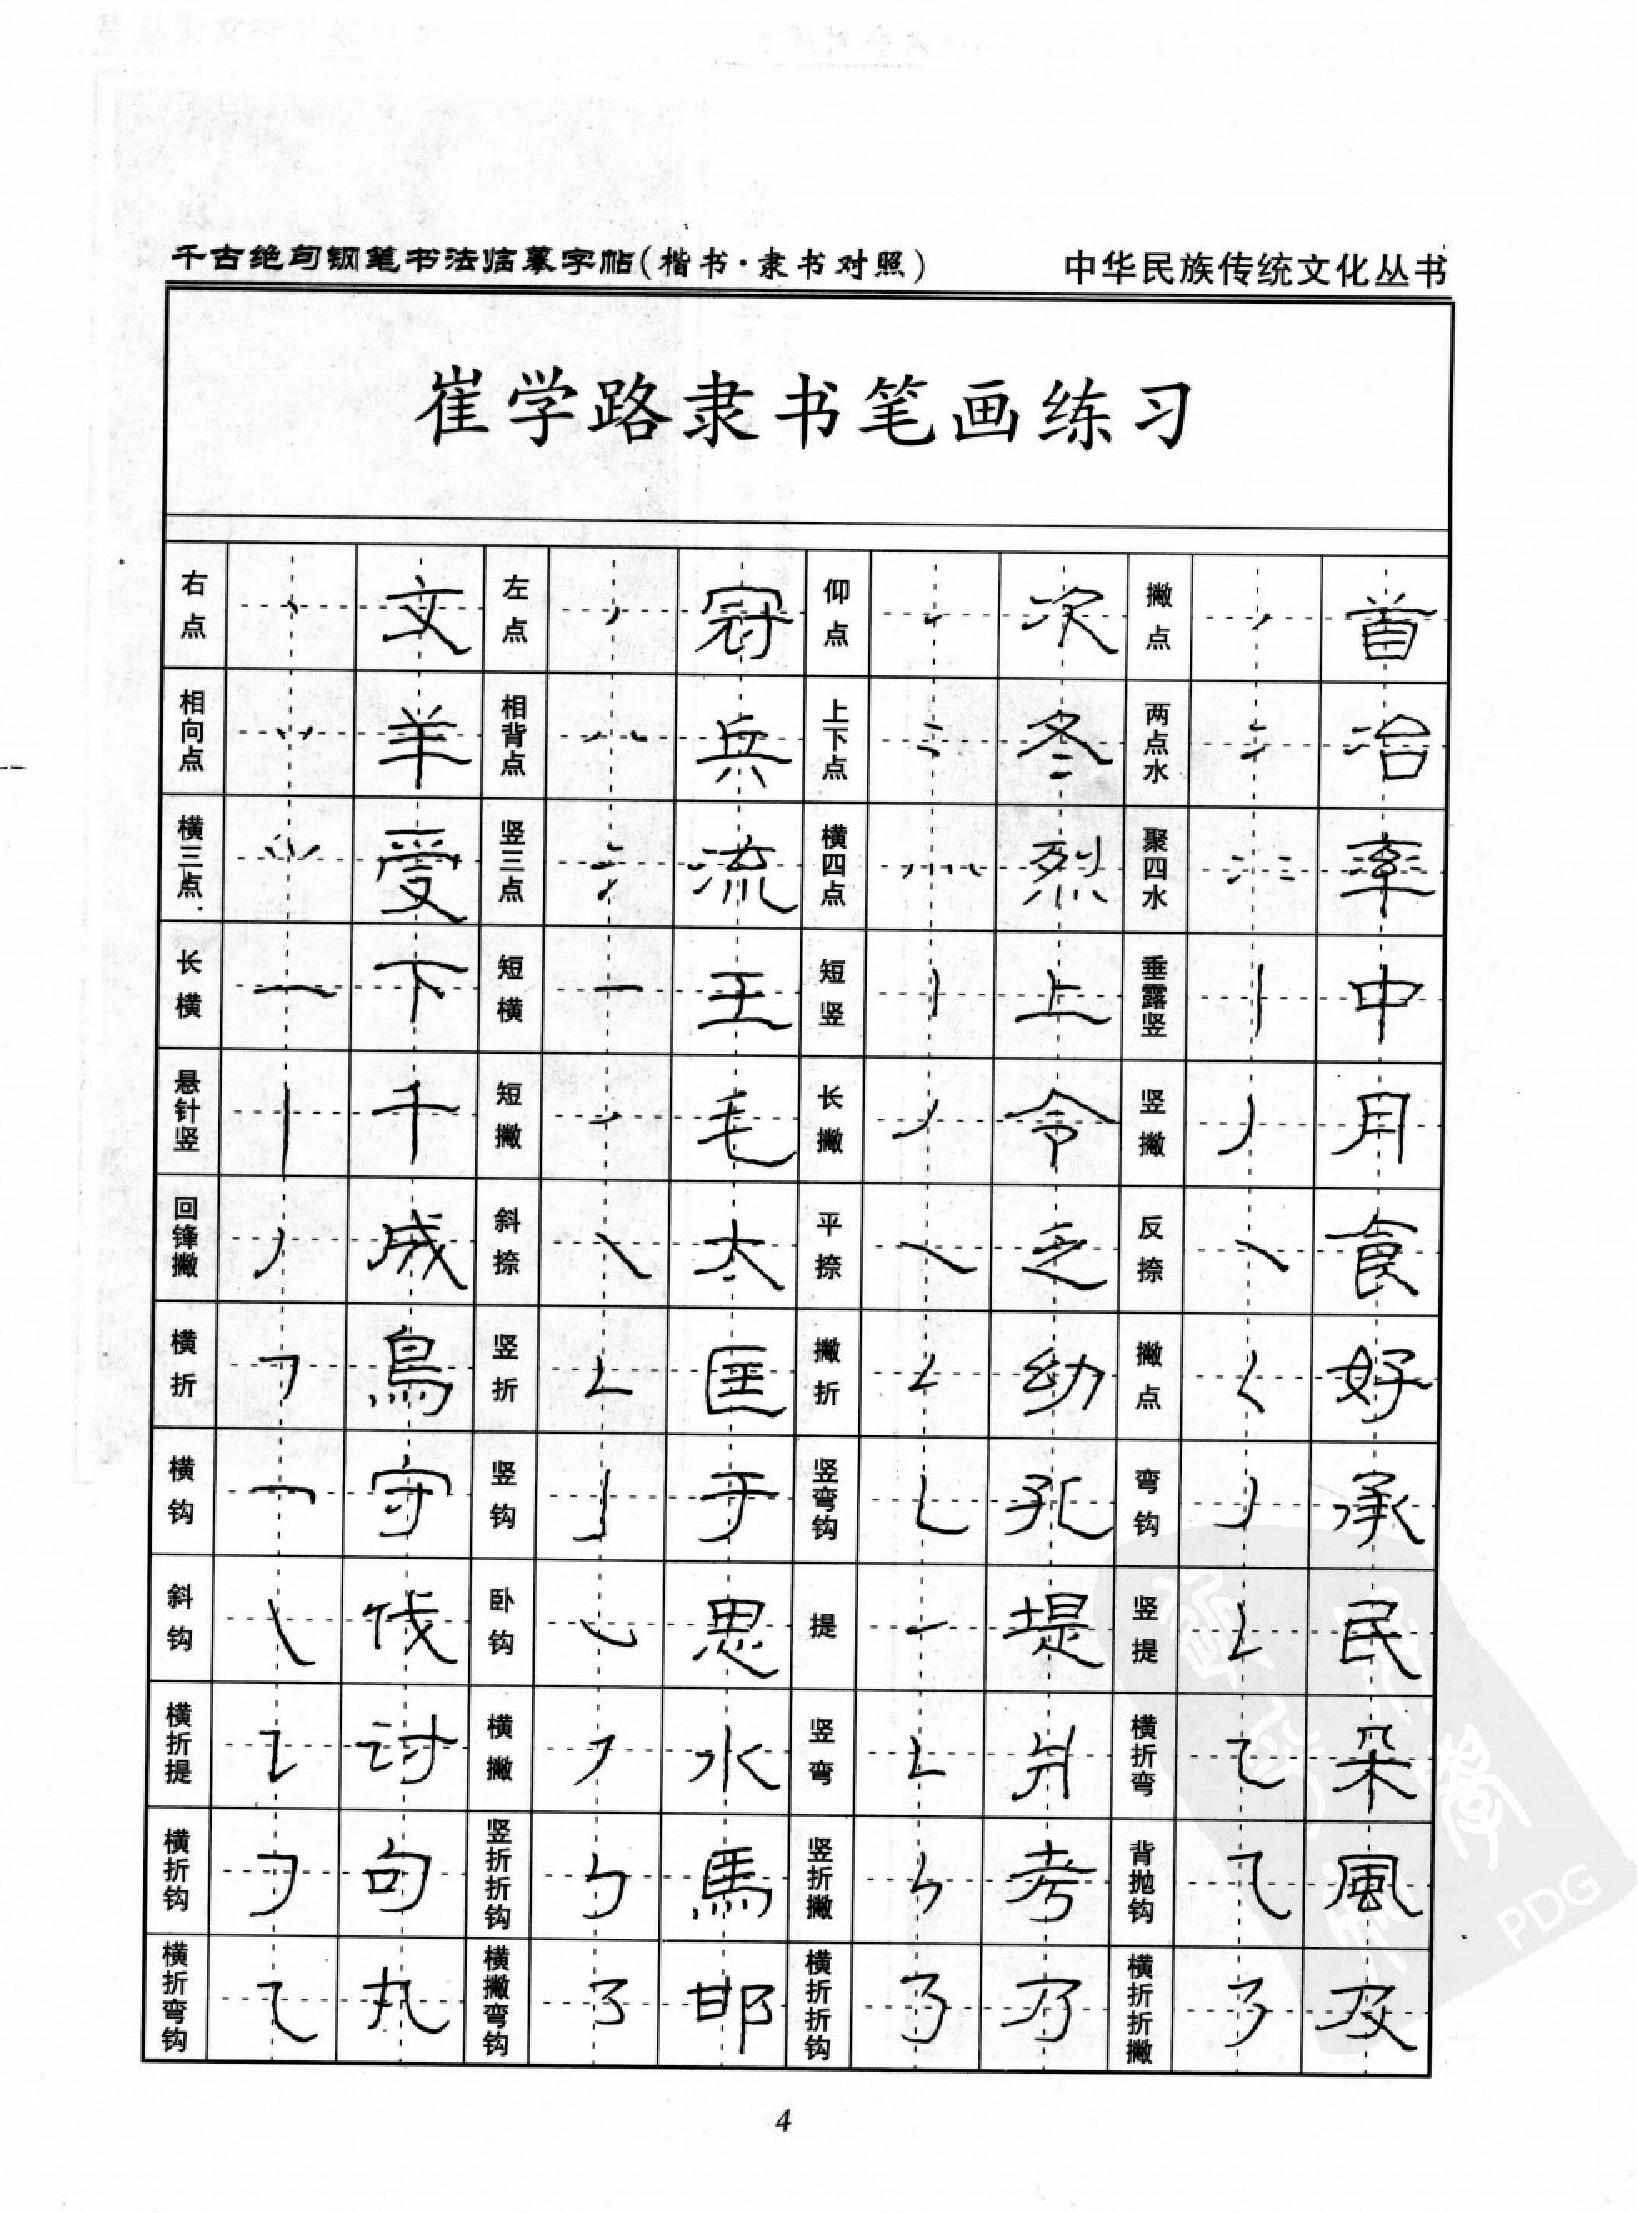 千古绝句钢笔书法临摹字帖(楷书·隶书对照) 中华民族传统文化丛书
崔学路隶书笔画练习
右点 丶 文 左点 冠 仰点 次 撇点 首
相向点 羊 相背点 兵 上下点 冬 两点水 冶
横三点 受 竖三点 流 横四点 烈 聚四水 率
长横 一 下 短横 一 王 短竖 丨 上 垂露竖 丨 中
悬针竖 丨 千 短撇 毛 长撇 丿 令 竖撇 丿 月
回锋撇 丿 成 斜捺 ㇏ 太 平捺 ㇏ 乏 反捺 食
横折 ㇕ 鳥 竖折 ㇗ 匡 撇折 ㇜ 幼 撇点 ㇛ 好
横钩 ㇖ 守 竖钩 亅 于 竖弯钩 ㇄ 孔 弯钩 承
斜钩 ㇂ 伐 卧钩 ㇃ 思 提 ㇀ 堤 竖提 ㇙ 民
横折提 ㇊ 讨 横撇 ㇇ 水 竖弯 ㇄ 爿 横折弯 ㇍ 朵
横折钩 ㇆ 句 竖折折钩 ㇉ 馬 竖折撇 ㇞ 考 背抛钩 ⺄ 風
横折弯钩 ㇈ 丸 横撇弯钩 ㇌ 邯 横折折钩 ㇡ 乃 横折折撇 ㇋ 及
4
PDG